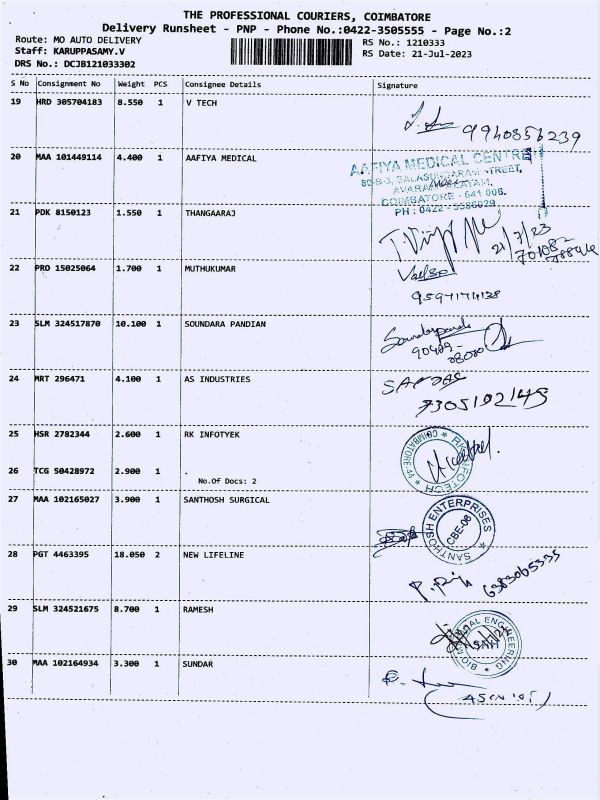 THE PROFESSIONAL COURIERS, COIMBATORE
Delivery Runsheet - PNP - Phone No.:0422-3505555 - Page No.:2
Route: MO AUTO DELIVERY
RS No.: 1210333
Staff: KARUPPASAMY.V
RS Date: 21-Jul-2023
DRS No.: DCJB121033302
S No Consignment No Weight PCS Consignee Details Signature
19 HRD 305704183 8.550 1 V TECH
9940856239
20 MAA 101449114 4.400 1 AAFIYA MEDICAL
AAFIYA MEDICAL CENTRE
COIMBATORE - 641 006.
21 PDK 8150123 1.550 1 THANGAARAJ
21/7/23
22 PRO 15025064 1.700 1 MUTHUKUMAR
23 SLM 324517870 10.100 1 SOUNDARA PANDIAN
24 MRT 296471 4.100 1 AS INDUSTRIES
7305102149
25 HSR 2782344 2.600 1 RK INFOTYEK
COIMBATORE
RK INFOTECH
26 TCG 50428972 2.900 1 .
No.Of Docs: 2
27 MAA 102165027 3.900 1 SANTHOSH SURGICAL
SANTHOSH ENTERPRISES
CBE-06
28 PGT 4463395 18.050 2 NEW LIFELINE
6383065335
29 SLM 324521675 8.700 1 RAMESH
30 MAA 102164934 3.300 1 SUNDAR